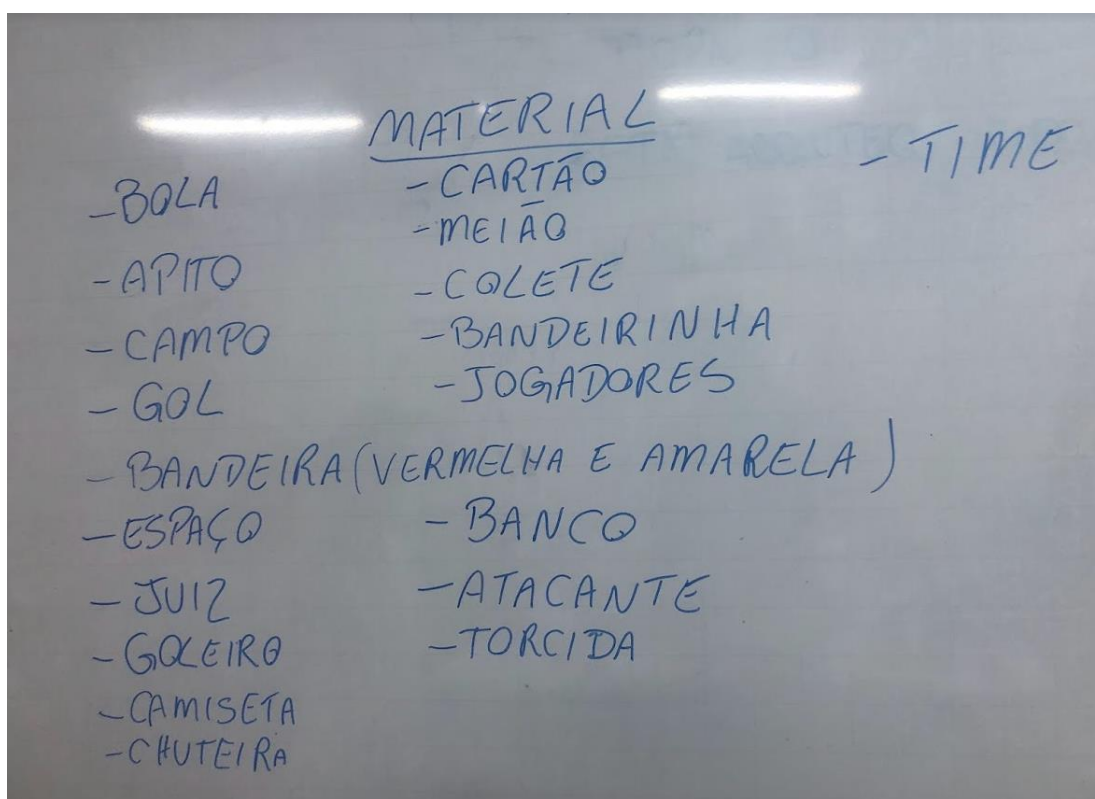 MATERIAL
-BOLA
-APITO
-CAMPO
-GOL
-BANDEIRA (VERMELHA E AMARELA)
-ESPAÇO
-JUIZ
-GOLEIRO
-CAMISETA
-CHUTEIRA
-CARTÃO
-MEIÃO
-COLETE
-BANDEIRINHA
-JOGADORES
-BANCO
-ATACANTE
-TORCIDA
-TIME